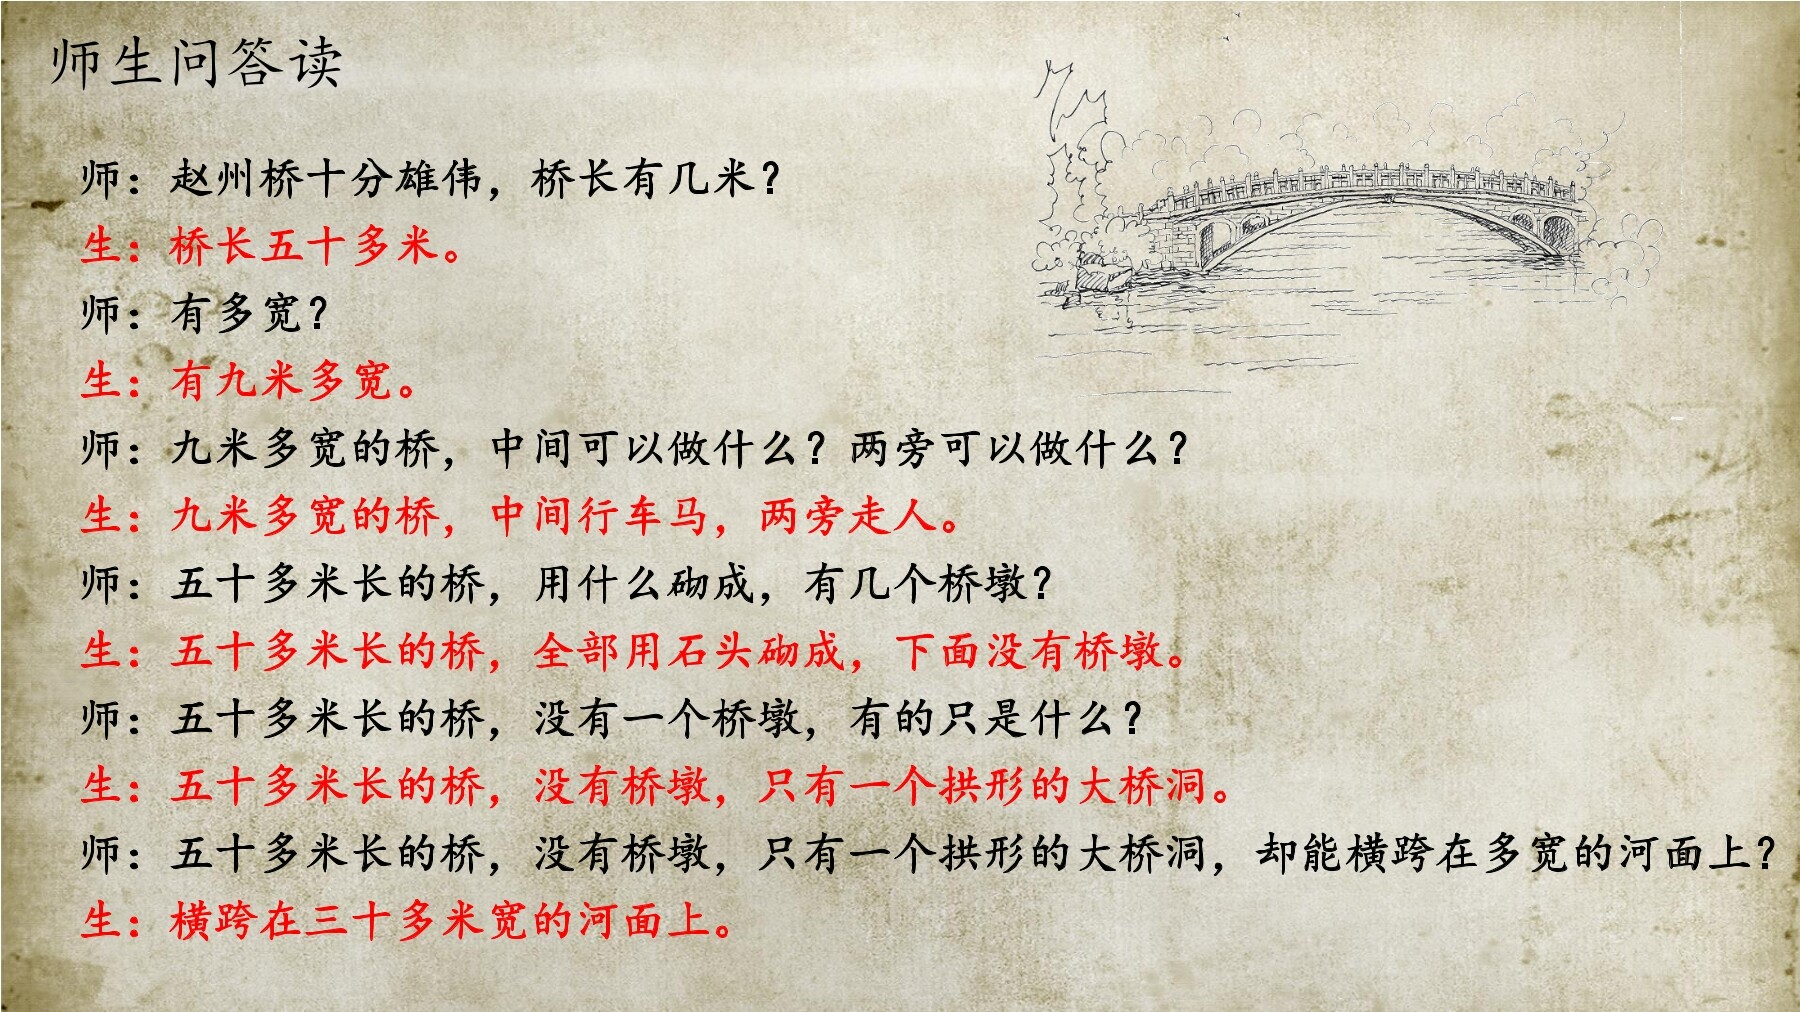 师生问答读
师：赵州桥十分雄伟，桥长有几米？
生：桥长五十多米。
师：有多宽？
生：有九米多宽。
师：九米多宽的桥，中间可以做什么？两旁可以做什么？
生：九米多宽的桥，中间行车马，两旁走人。
师：五十多米长的桥，用什么砌成，有几个桥墩？
生：五十多米长的桥，全部用石头砌成，下面没有桥墩。
师：五十多米长的桥，没有一个桥墩，有的只是什么？
生：五十多米长的桥，没有桥墩，只有一个拱形的大桥洞。
师：五十多米长的桥，没有桥墩，只有一个拱形的大桥洞，却能横跨在多宽的河面上？
生：横跨在三十多米宽的河面上。